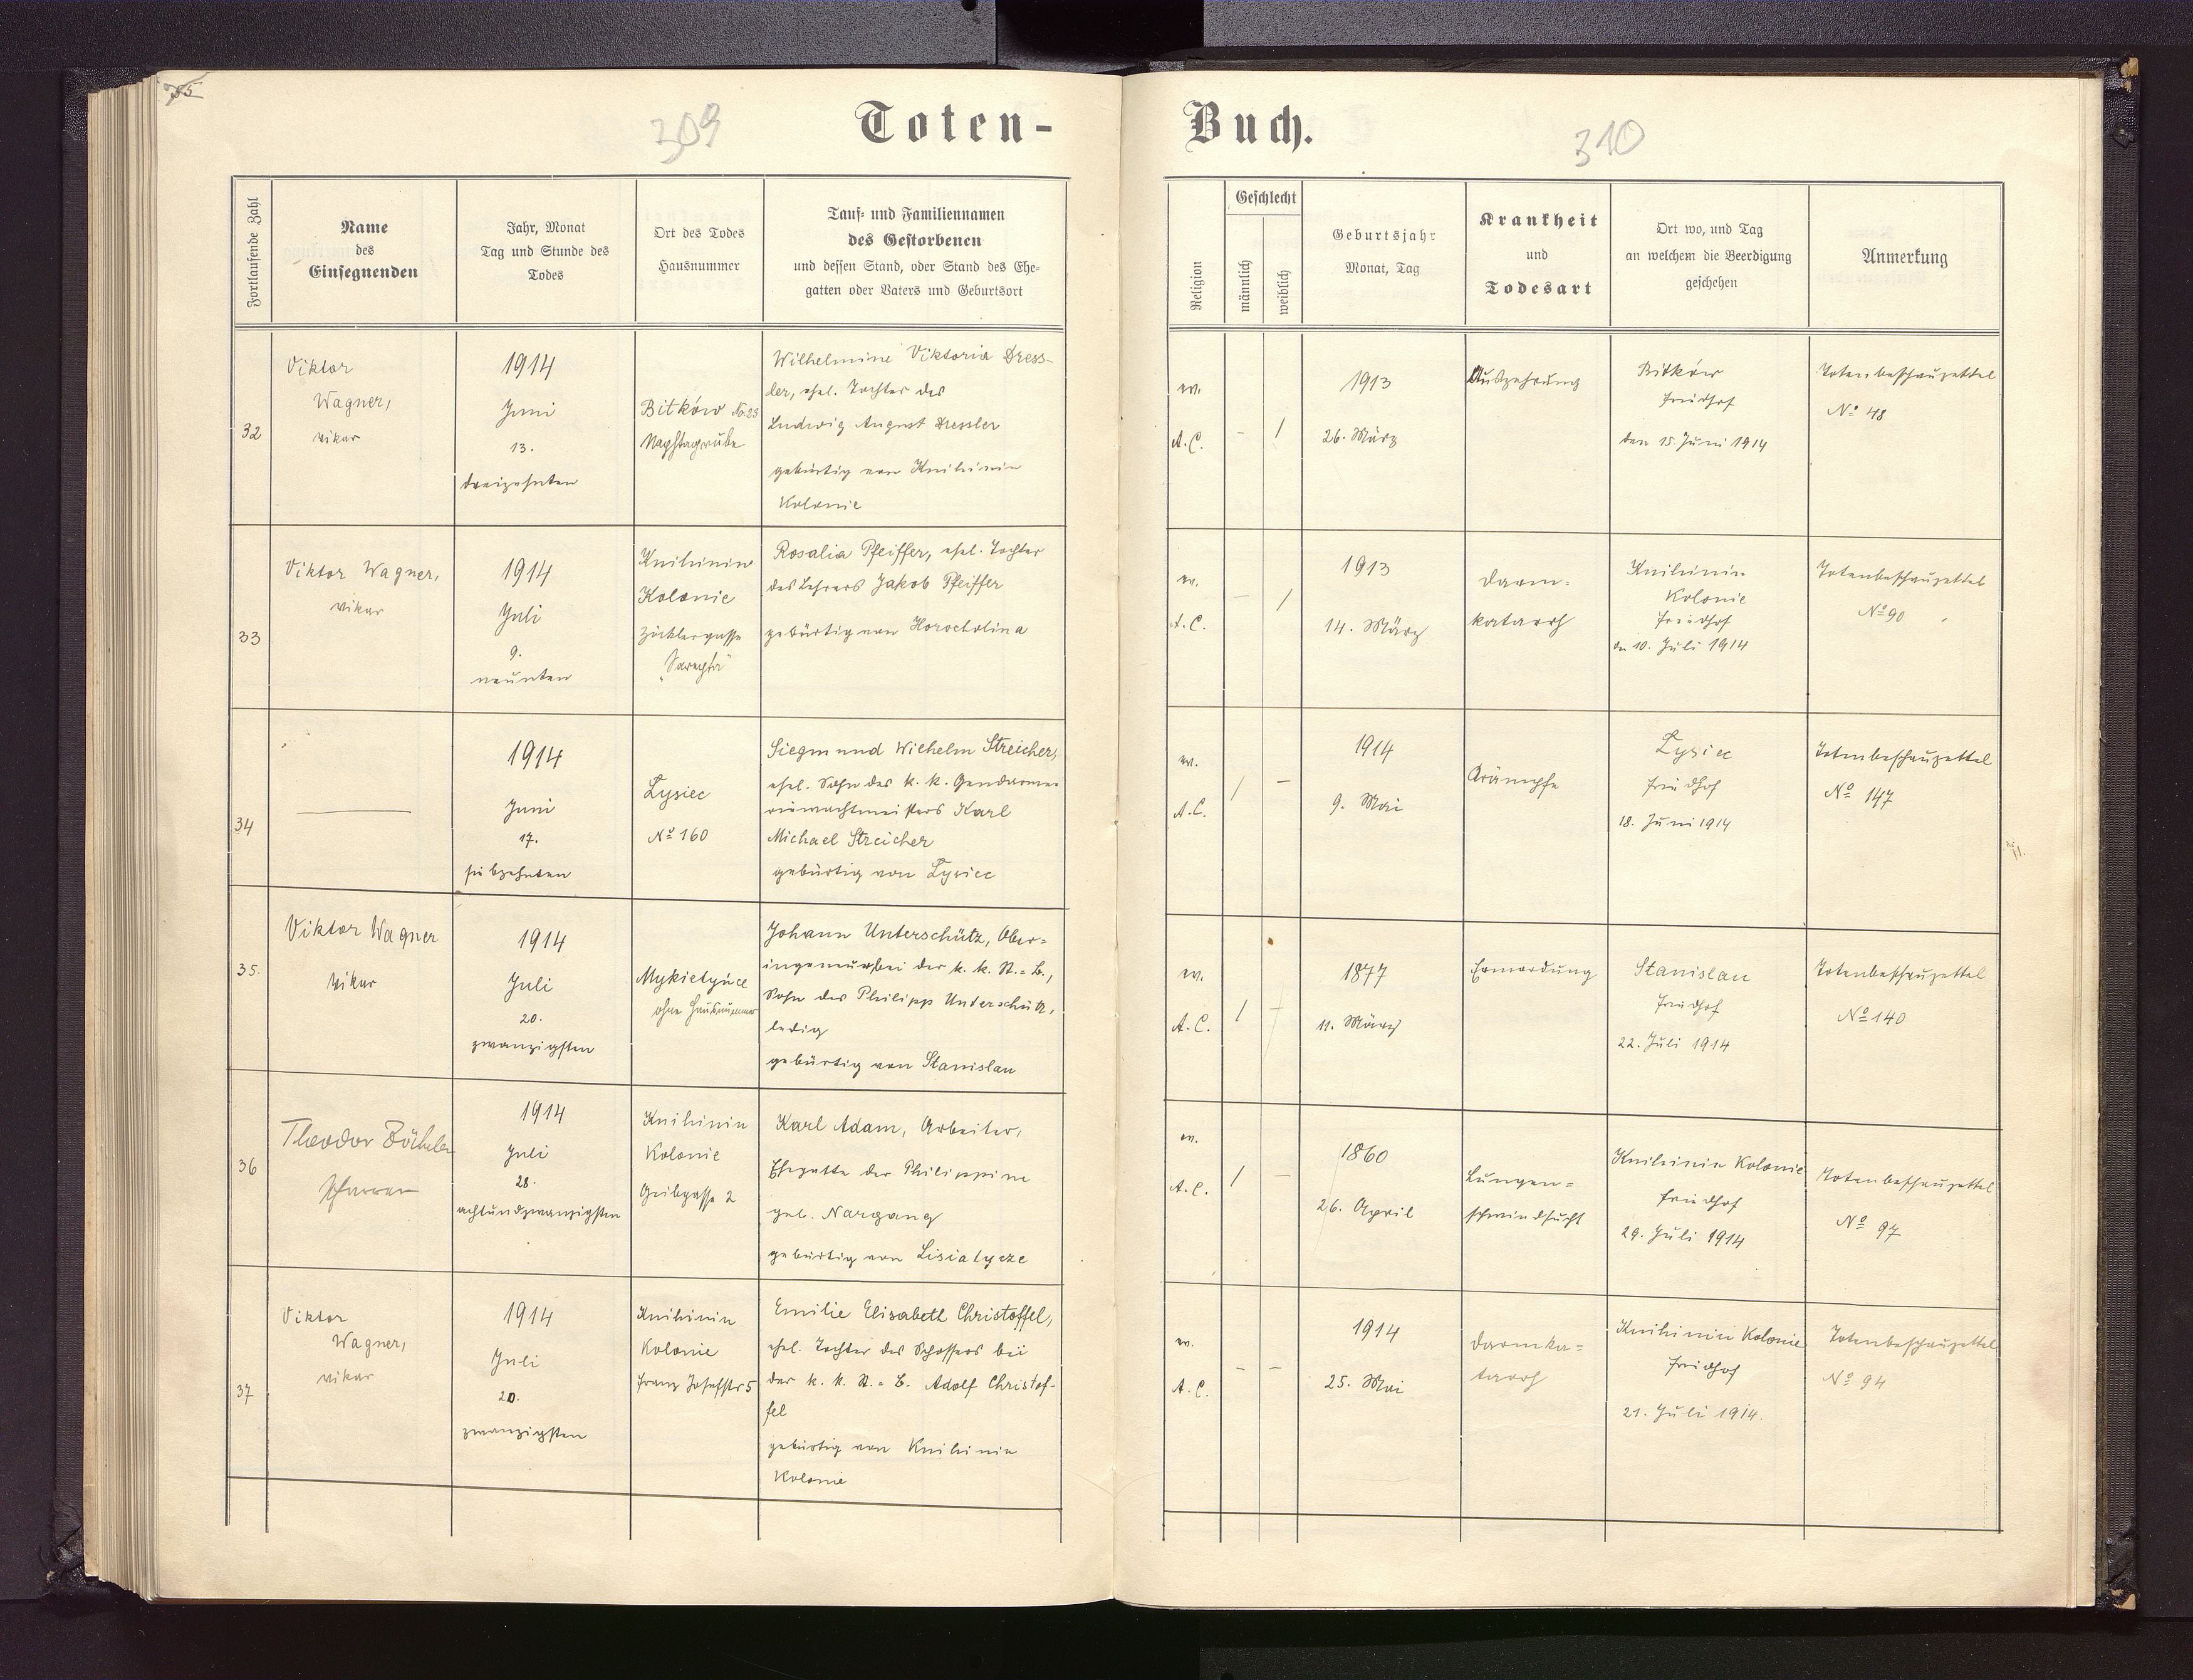 309
Toten-
Buch.
310
Fortlaufende Zahl
Name
des
Einsegnenden
Jahr, Monat
Tag und Stunde des
Todes
Ort des Todes
Hausnummer
Tauf- und Familiennamen
des Gestorbenen
und dessen Stand, oder Stand des Ehe-
gatten oder Vaters und Geburtsort
Religion
Geschlecht
männlich
weiblich
Geburtsjahr
Monat, Tag
Krankheit
und
Todesart
Ort wo, und Tag
an welchem die Beerdigung
geschehen
Anmerkung
32
Viktor
Wagner,
Vikar
1914
Juni
13.
dreizehnten
Bitków No. 23
Naphtagrube
Wilhelmine Viktoria Dress-
ler, ehel. Tochter des
Ludwig August Dressler
gebürtig von Knihinin
Kolonie
ev.
A.C.
-
/
1913
26. März
Auszehrung
Bitków
Friedhof
den 15 Juni 1914
Totenbeschauzettel
No 48
33
Viktor Wagner,
Vikar
1914
Juli
9.
neunten
Knihinin
Kolonie
Zöcklergasse
"Sarepta"
Rosalia Pfeiffer, ehel. Tochter
des Lehrers Jakob Pfeiffer
gebürtig von Horocholina
ev.
A.C.
-
/
1913
14. März
Darm-
katarrh
Knihinin
Kolonie
Friedhof
den 10. Juli 1914
Totenbeschauzettel
No 90
34
1914
Juni
17.
siebzehnten
Łysiec
No 160
Siegmund Wilhelm Streicher,
ehel. Sohn des k. k. Gendarme-
riewachtmeisters Karl
Michael Streicher
gebürtig von Łysiec
ev.
A.C.
/
-
1914
9. Mai
Krämpfe
Łysiec
Friedhof
18. Juni 1914
Totenbeschauzettel
No 147
35.
Viktor Wagner
Vikar
1914
Juli
20.
zwanzigsten
Mykietyńce
ohne Hausnummer
Johann Unterschütz, Ober-
ingenieur bei der k. k. St.-B.,
Sohn des Philipp Unterschütz,
ledig
gebürtig von Stanislau
ev.
A.C.
/
-
1877
11. März
Ermordung
Stanislau
Friedhof
22. Juli 1914
Totenbeschauzettel
No 140
36
Theodor Zöckler
Pfarrer
1914
Juli
28.
achtundzwanzigsten
Knihinin
Kolonie
Karl Adam, Arbeiter,
Ehegatte der Philippine
geb. Nargang
gebürtig von
ev.
A.C.
/
-
1860
26. April
Lungen-
schwindsucht
Knihinin Kolonie
Friedhof
29. Juli 1914
Totenbeschauzettel
No 97
37
Viktor
Wagner,
Vikar
1914
Juli
20.
zwanzigsten
Knihinin
Kolonie
Franz Josefstr 5
Emilie Elisabeth Christoffel,
ehel. Tochter des Schlossers bei
der k. k. St.-B. Adolf Christof-
fel
gebürtig von Knihinin
Kolonie
ev.
A.C.
-
-
1914
25. Mai
Darmka-
tarrh
Knihinin Kolonie
Friedhof
21. Juli 1914.
Totenbeschauzettel
No 94